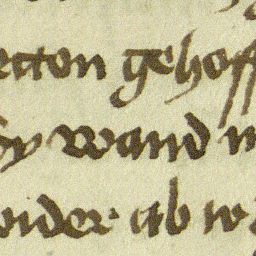 etton gehoff
sy wand
wider ab